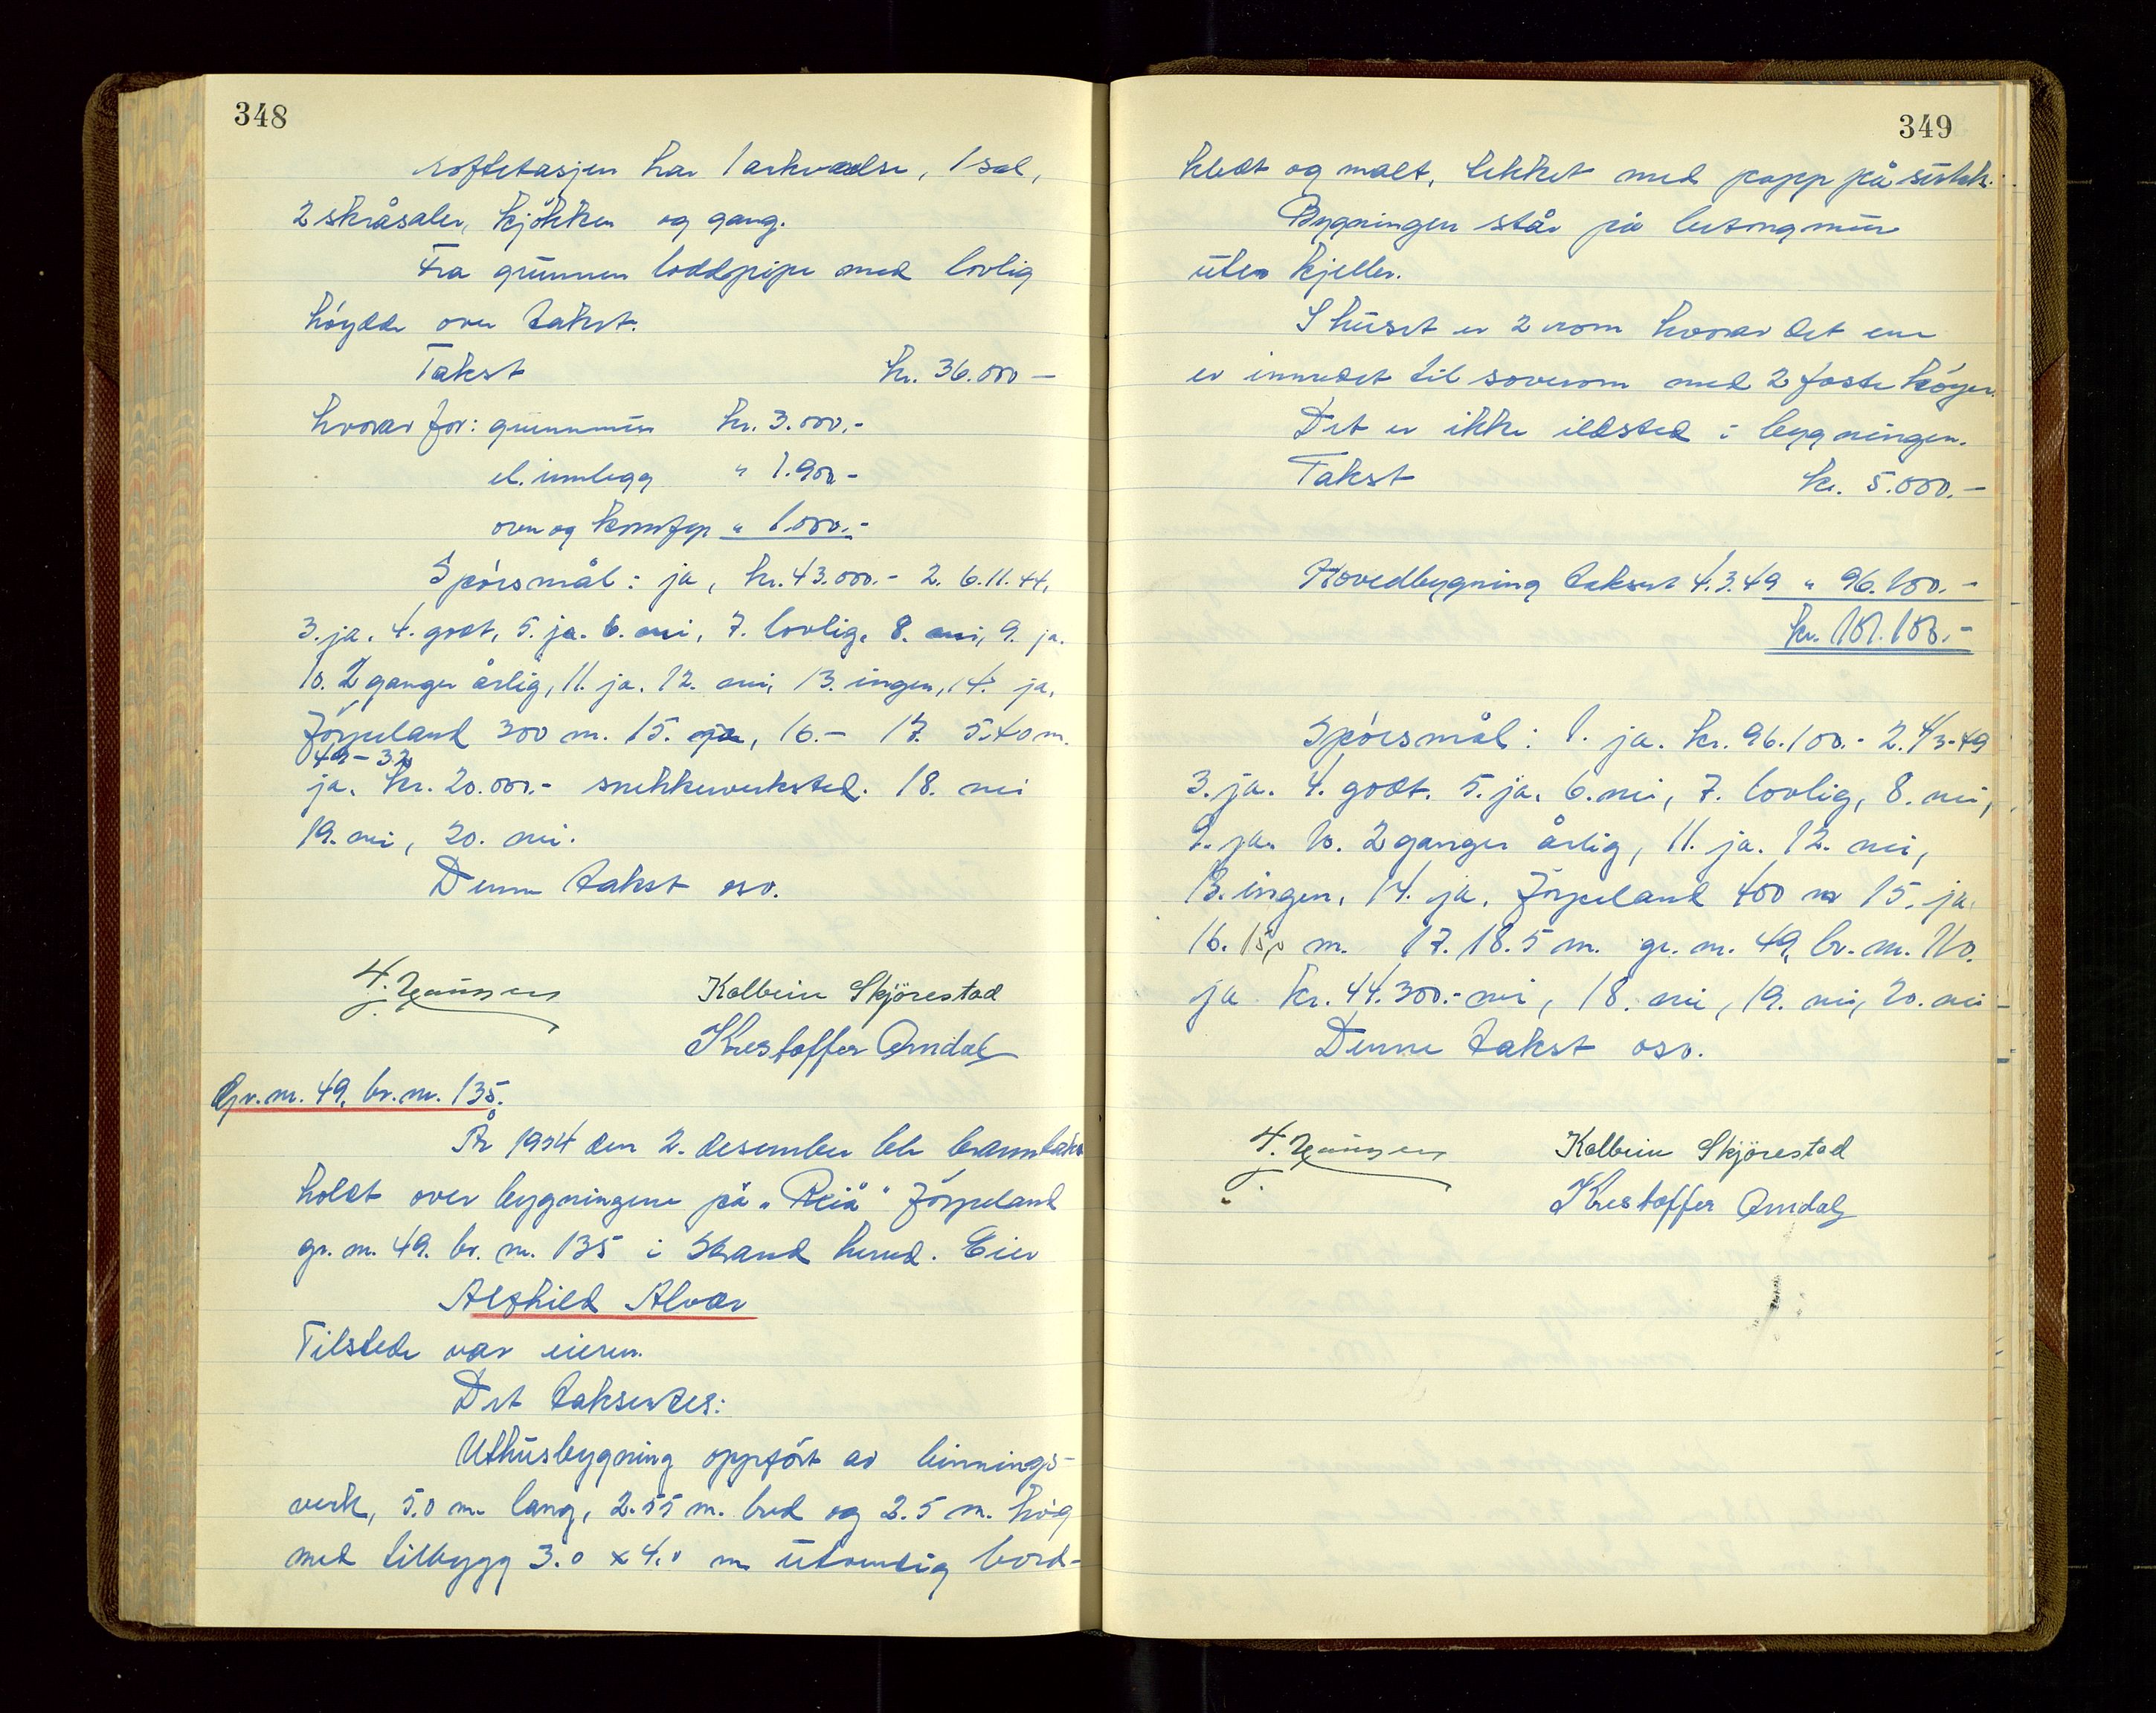 348
loftetasjen har 1 arkværelse, 1 sal,
2 skråsaler, kjøkken og gang.
Fra grunnen loddpipe med lovlig
høyde over takst.
Takst kr. 36.000 —
hvorav for: grunnmur kr. 3.000.-
el. innlegg " 1.900 -
ovn og komfyr " 1.000.-
Spørsmål: ja, kr. 43.000.- 2. 6.11.44,
3. ja. 4. godt, 5. ja. 6. nei, 7. lovlig, 8. nei, 9. ja.
10. 2 ganger årlig, 11. ja. 12. nei, 13. ingen, 14. ja,
Jørpeland 300 m. 15. ja, 16. - 17. 5.40 m.
49-32
ja. kr. 20.000.- snekkerverksted. 18. nei
19. nei, 20. nei.
Denne takst osv.
Kolbein Skjørestad
Kristoffer Omdal
Gr. nr. 49, br. nr. 135.
År 1954 den 2. desember ble branntakst
holdt over bygningene på "Reiå" Jørpeland
gr. nr. 49. br. nr. 135 i Strand herred. Eier
Alfhild Alvær
Tilstede var eieren.
Det takseredes:
Uthusbygning oppført av binnings-
verk, 5.0 m. lang, 2.55 m. bred og 2.5 m. høg
med tilbygg 3.0 x 4.0 m utvendig bord-
349
kledt og malt, tekket med papp på sutak.
Bygningen står på betongmur
uten kjeller.
I huset er 2 rom hvorav det ene
er innredet til soverom med 2 faste køyer.
Det er ikke ildsted i bygningen.
Takst kr. 5.000.-
Hovedbygning taksert 4.3.49 " 96.100.-
kr. 101.100.-
Spørsmål: 1. ja. kr. 96.100.- 2. 4/3-49
3. ja. 4. godt. 5. ja, 6. nei, 7. lovlig, 8. nei,
9. ja. 10. 2 ganger årlig, 11. ja. 12. nei,
13. ingen, 14. ja, Jørpeland 400 m 15. ja.
16. 150 m. 17. 18.5 m. gr. nr. 49, br. nr. 110.
ja kr. 44.300.- nei, 18. nei, 19. nei, 20. nei -
Denne takst osv.
Kolbein Skjørestad
Kristoffer Omdal